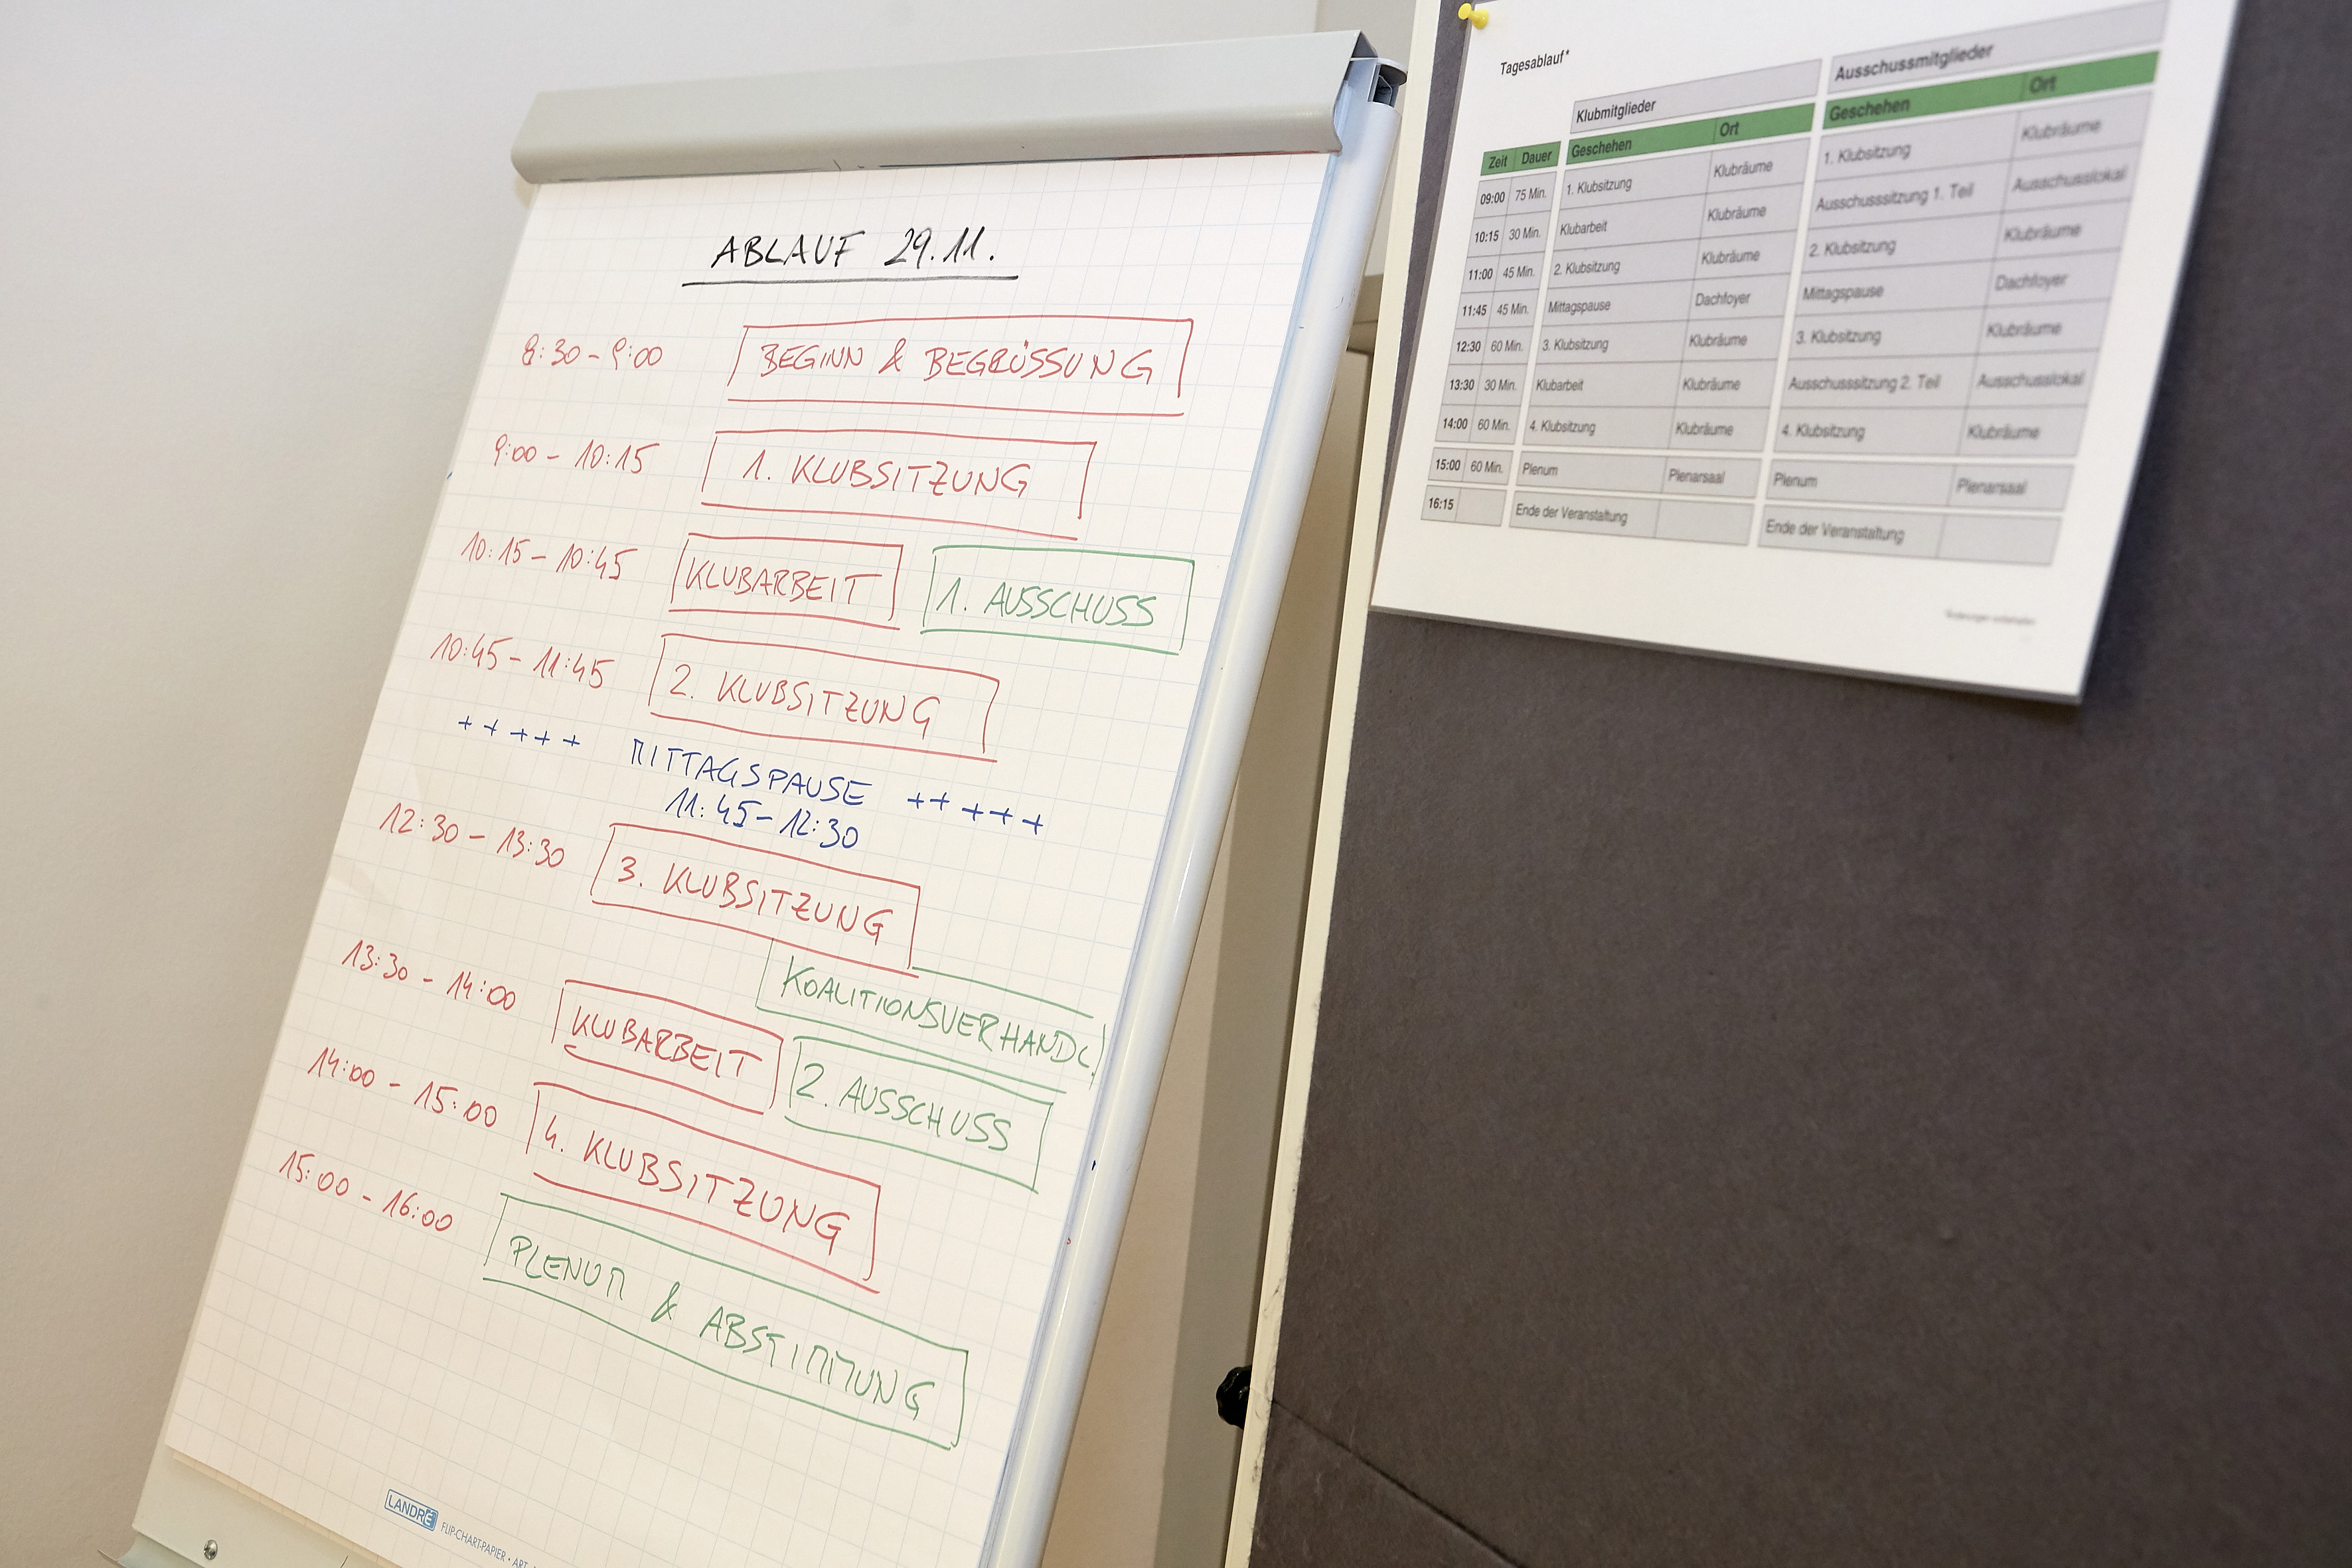 ABLAUF 29.11.
8:30 - 9:00 BEGINN & BEGRÜSSUNG
9:00 - 10:15 1. KLUBSITZUNG
10:15 - 10:45 KLUBARBEIT 1. AUSSCHUSS
10:45 - 11:45 2. KLUBSITZUNG
+ + + + + MITTAGSPAUSE + + + + +
11:45 - 12:30
12:30 - 13:30 3. KLUBSITZUNG
KOALITIONSVERHANDL.
13:30 - 14:00 KLUBARBEIT 2. AUSSCHUSS
14:00 - 15:00 4. KLUBSITZUNG
15:00 - 16:00 PLENUM & ABSTIMMUNG
LANDRÉ FLIP-CHART-PAPIER • ART.
Tagesablauf*
Klubmitglieder Ausschussmitglieder
Zeit Dauer Geschehen Ort Geschehen Ort
09:00 75 Min. 1. Klubsitzung Klubräume 1. Klubsitzung Klubräume
10:15 30 Min. Klubarbeit Klubräume Ausschusssitzung 1. Teil Ausschusslokal
11:00 45 Min. 2. Klubsitzung Klubräume 2. Klubsitzung Klubräume
11:45 45 Min. Mittagspause Dachfoyer Mittagspause Dachfoyer
12:30 60 Min. 3. Klubsitzung Klubräume 3. Klubsitzung Klubräume
13:30 30 Min. Klubarbeit Klubräume Ausschusssitzung 2. Teil Ausschusslokal
14:00 60 Min. 4. Klubsitzung Klubräume 4. Klubsitzung Klubräume
15:00 60 Min. Plenum Plenarsaal Plenum Plenarsaal
16:15 Ende der Veranstaltung Ende der Veranstaltung